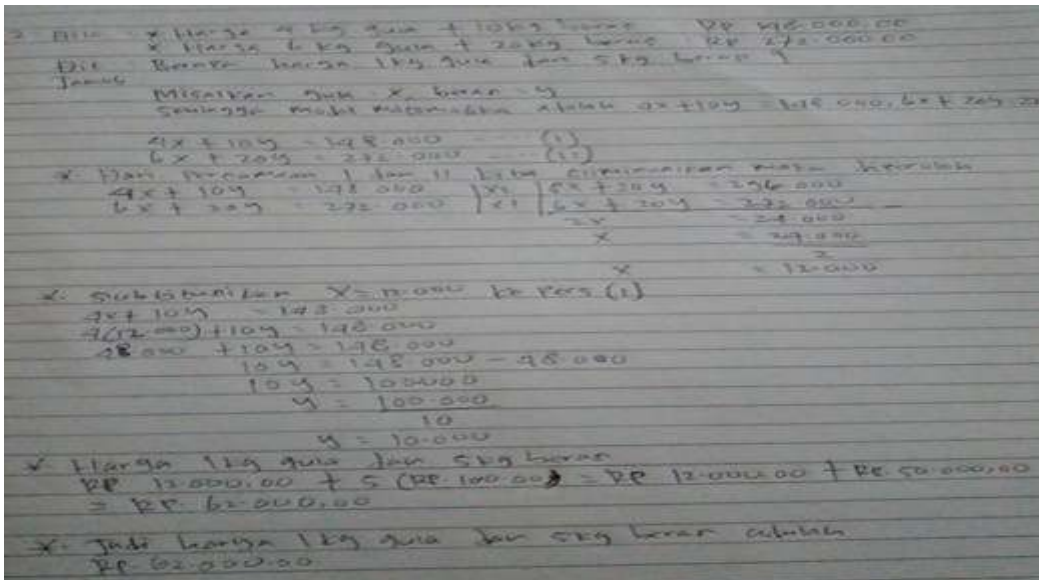 2. Dik : * Harga 4 kg gula + 10 kg beras Rp 148.000,00
* Harga 6 kg gula + 20 kg beras Rp 272.000,00
Dit : Berapa harga 1 kg gula dan 5 kg beras ?
Jawab
Misalkan gula = x, beras = y
Sehingga model matematika adalah 4x + 10y = 148.000, 6x + 20y =
4x + 10y = 148.000 ... (1)
6x + 20y = 272.000 ... (11)
* Dari Persamaan 1 dan 11 kita eliminasikan maka
4x + 10y = 148.000 |x2| 8x + 20y = 296.000
6x + 20y = 272.000 |x1| 6x + 20y = 272.000 -
2x = 24.000
x = 24.000
2
x = 12.000
*. x = 12.000 ke Pers (1)
4x + 10y = 148.000
4(12.000) + 10y = 148.000
48.000 + 10y = 148.000
10y = 148.000 - 48.000
10y = 100000
y = 100.000
10
y = 10.000
* Harga 1 kg gula dan 5 kg beras
Rp 12.000,00 + 5 (Rp. 100.00) = Rp 12.000.00 + Rp. 50.000,00
= Rp. 62.000,00
*. Jadi harga 1 kg gula dan 5 kg beras adalah
Rp 62.000.00